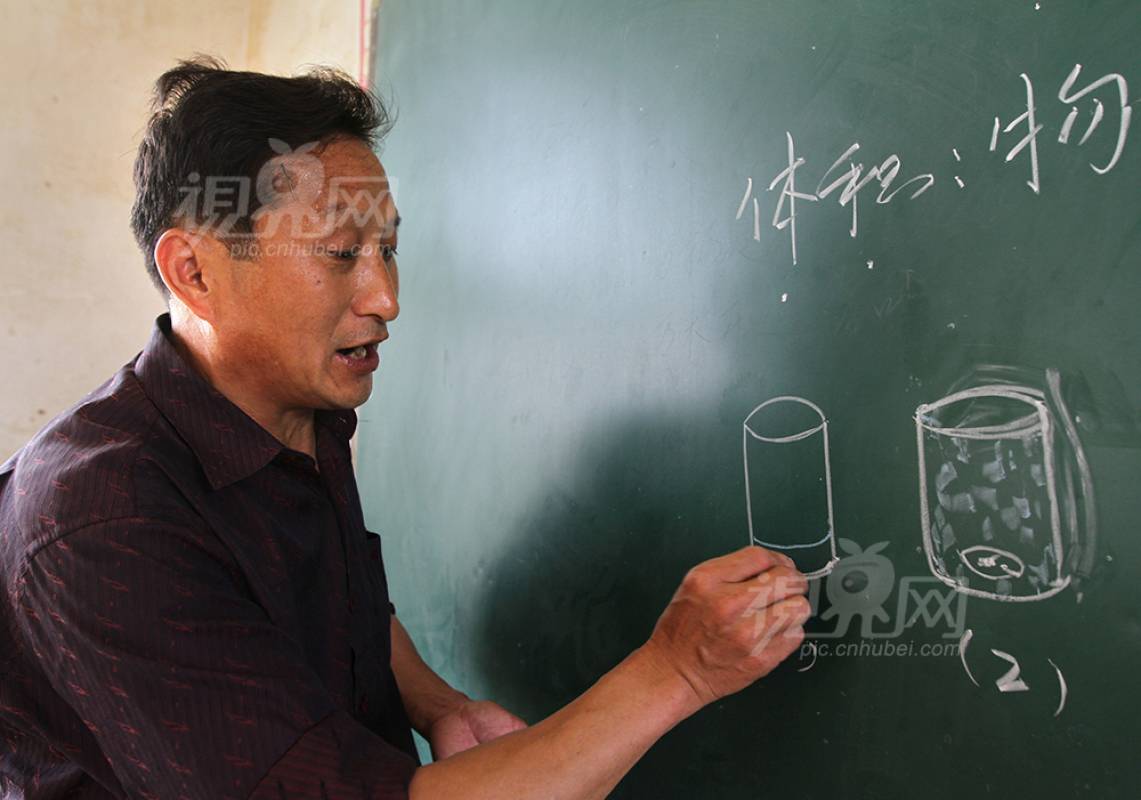 体积:物
(2)
视界网
pic.cnhubei.com
视界网
pic.cnhubei.com